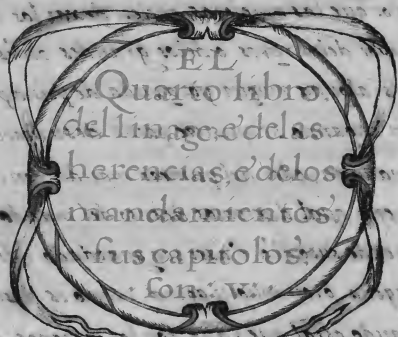 EL
Quarto libro
del linage, e delas
herencias, e delos
mandamientos
sus capitolos
son: v.